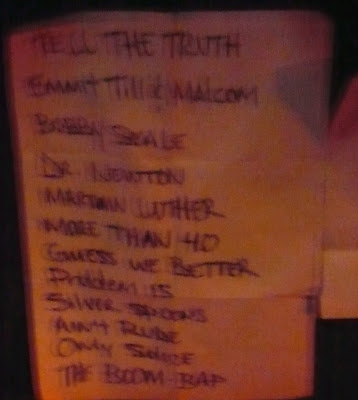 TELL THE TRUTH
EMMIT Till & MALCOM
BOBBY SEALE
DR. NEWTON
MARTIN LUTHER
MORE THAN 40
GUESS WE BETTER
Problem is
SILVER SPOONS
AIN'T RUDE
ONLY
THE BOOM-BAP